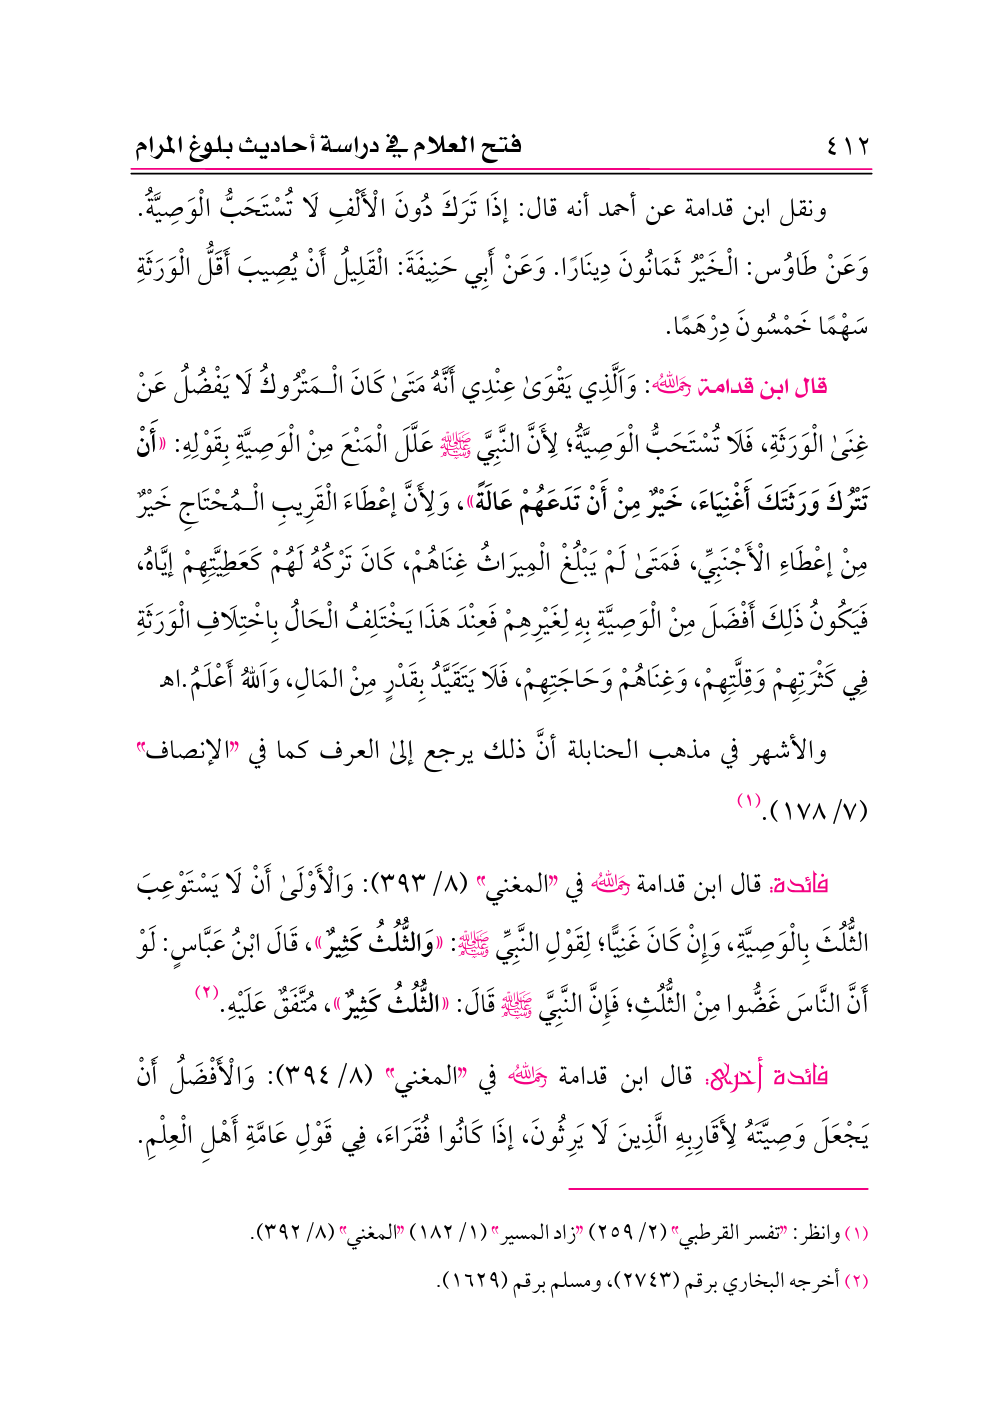 ٤١٢ فتح العلام في دراسة أحاديث بلوغ المرام
ونقل ابن قدامة عن أحمد أنه قال: إذَا تَرَكَ دُونَ الْأَلْفِ لَا تُسْتَحَبُّ الْوَصِيَّةُ.
وَعَنْ طَاوُس: الْخَيْرُ ثَمَانُونَ دِينَارًا. وَعَنْ أَبِي حَنِيفَةَ: الْقَلِيلُ أَنْ يُصِيبَ أَقَلُّ الْوَرَثَةِ
سَهْمًا خَمْسُونَ دِرْهَمًا.
قال ابن قدامة رَحِمَهُ اللهُ: وَاَلَّذِي يَقْوَىٰ عِنْدِي أَنَّهُ مَتَىٰ كَانَ الْـمَتْرُوكُ لَا يَفْضُلُ عَنْ
غِنَىٰ الْوَرَثَةِ، فَلَا تُسْتَحَبُّ الْوَصِيَّةُ؛ لِأَنَّ النَّبِيَّ ﷺ عَلَّلَ الْمَنْعَ مِنْ الْوَصِيَّةِ بِقَوْلِهِ: «أَنْ
تَتْرُكَ وَرَثَتَكَ أَغْنِيَاءَ، خَيْرٌ مِنْ أَنْ تَدَعَهُمْ عَالَةً»، وَلِأَنَّ إعْطَاءَ الْقَرِيبِ الْـمُحْتَاجِ خَيْرٌ
مِنْ إعْطَاءِ الْأَجْنَبِيِّ، فَمَتَىٰ لَمْ يَبْلُغْ الْمِيرَاثُ غِنَاهُمْ، كَانَ تَرْكُهُ لَهُمْ كَعَطِيَّتِهِمْ إيَّاهُ،
فَيَكُونُ ذَلِكَ أَفْضَلَ مِنْ الْوَصِيَّةِ بِهِ لِغَيْرِهِمْ فَعِنْدَ هَذَا يَخْتَلِفُ الْحَالُ بِاخْتِلَافِ الْوَرَثَةِ
فِي كَثْرَتِهِمْ وَقِلَّتِهِمْ، وَغِنَاهُمْ وَحَاجَتِهِمْ، فَلَا يَتَقَيَّدُ بِقَدْرٍ مِنْ المَالِ، وَاَللهُ أَعْلَمُ.اهـ
والأشهر في مذهب الحنابلة أنَّ ذلك يرجع إلىٰ العرف كما في ”الإنصاف“
(٧/ ١٧٨).(١)
فائدة: قال ابن قدامة رَحِمَهُ اللهُ في ”المغني“ (٨/ ٣٩٣): وَالْأَوْلَىٰ أَنْ لَا يَسْتَوْعِبَ
الثُّلُثَ بِالْوَصِيَّةِ، وَإِنْ كَانَ غَنِيًّا؛ لِقَوْلِ النَّبِيِّ ﷺ: «وَالثُّلُثُ كَثِيرٌ»، قَالَ ابْنُ عَبَّاسٍ: لَوْ
أَنَّ النَّاسَ غَضُّوا مِنْ الثُّلُثِ؛ فَإِنَّ النَّبِيَّ ﷺ قَالَ: «الثُّلُثُ كَثِيرٌ»، مُتَّفَقٌ عَلَيْهِ.(٢)
فائدة أخرى: قال ابن قدامة رَحِمَهُ اللهُ في ”المغني“ (٨/ ٣٩٤): وَالْأَفْضَلُ أَنْ
يَجْعَلَ وَصِيَّتَهُ لِأَقَارِبِهِ الَّذِينَ لَا يَرِثُونَ، إذَا كَانُوا فُقَرَاءَ، فِي قَوْلِ عَامَّةِ أَهْلِ الْعِلْمِ.
(١) وانظر: ”تفسر القرطبي“ (٢/ ٢٥٩) ”زاد المسير“ (١/ ١٨٢) ”المغني“ (٨/ ٣٩٢).
(٢) أخرجه البخاري برقم (٢٧٤٣)، ومسلم برقم (١٦٢٩).